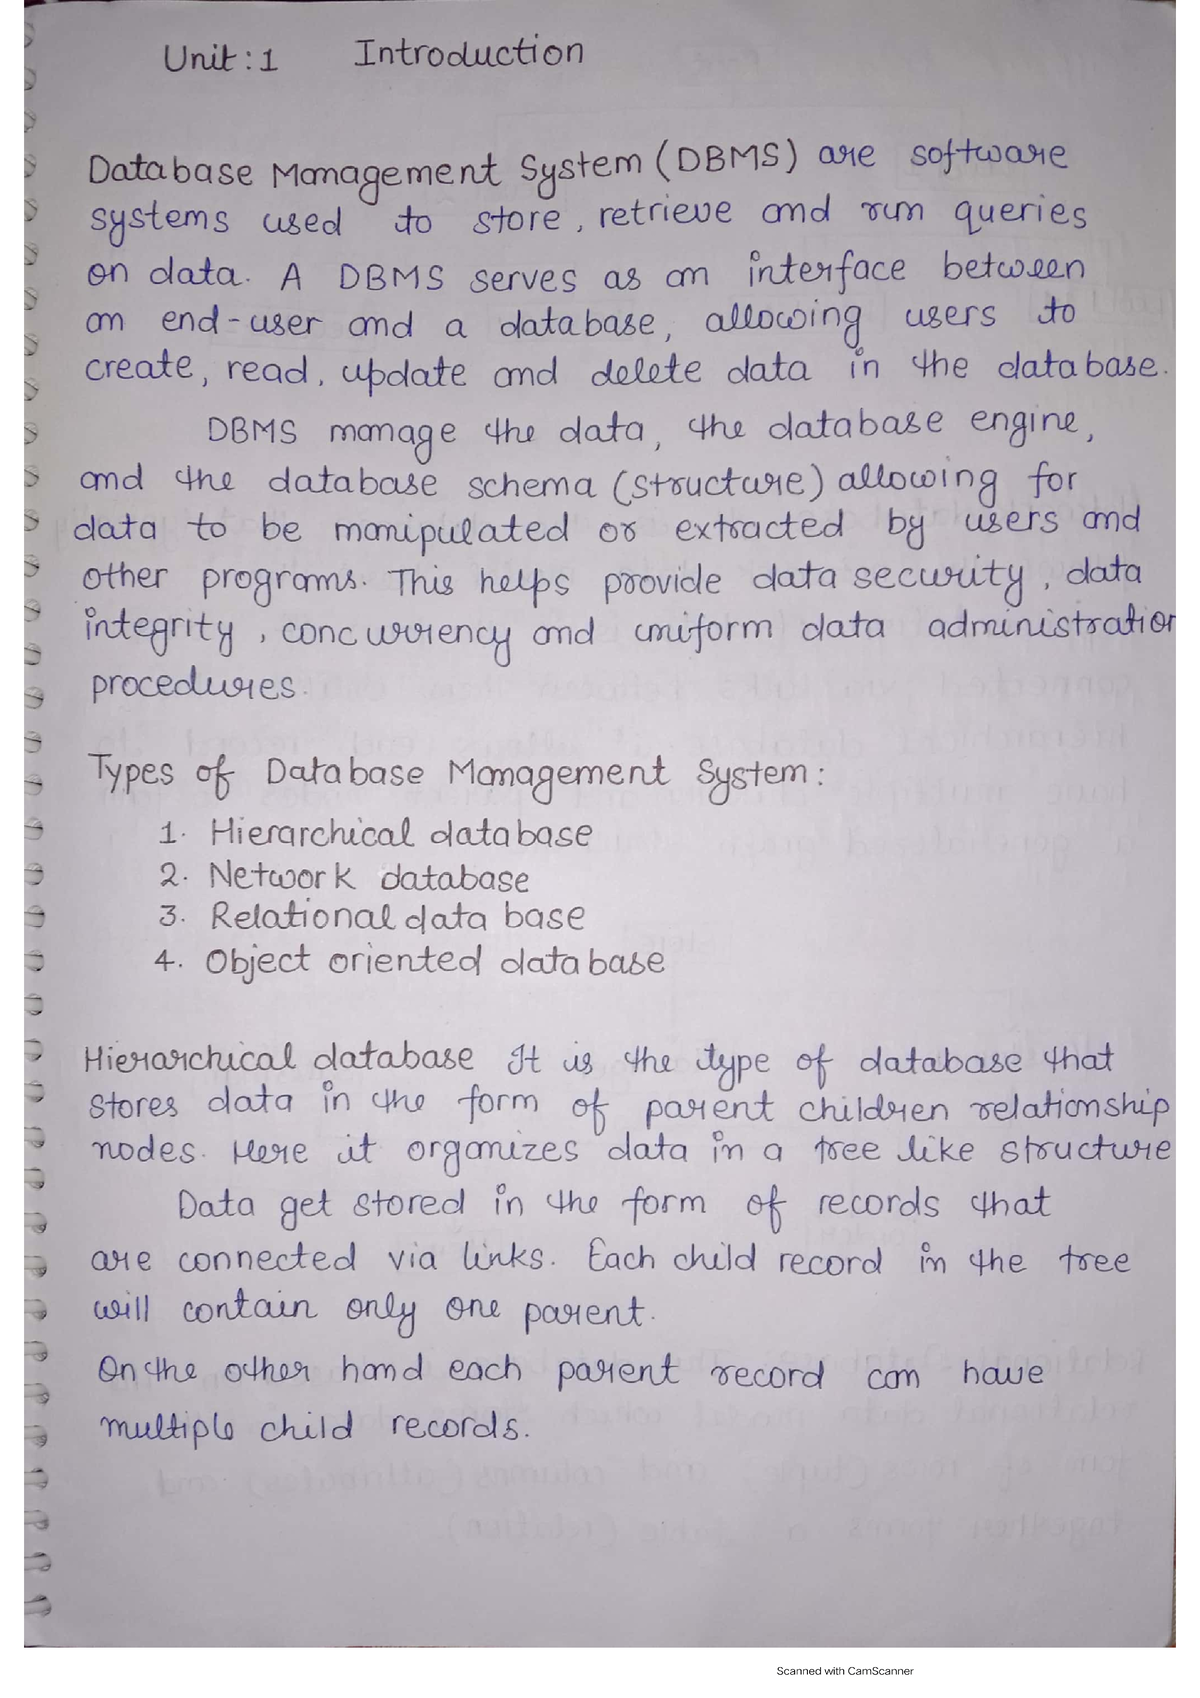 Unit : 1 Introduction
Database Management System (DBMS) are software
systems used to store, retrieve and run queries
on data. A DBMS serves as an interface between
an end-user and a database, allowing users to
create, read, update and delete data in the database.
DBMS manage the data, the database engine,
and the database schema (structure) allowing for
data to be manipulated or extracted by users and
other programs. This helps provide data security, data
integrity, concurrency and uniform data administration
procedures.
Types of Database Management System :
1. Hierarchical database
2. Network database
3. Relational data base
4. Object oriented database
Hierarchical database It is the type of database that
stores data in the form of parent children relationship
nodes. Here it organizes data in a tree like structure
Data get stored in the form of records that
are connected via links. Each child record in the tree
will contain only one parent.
On the other hand each parent record can have
multiple child records.
Scanned with CamScanner